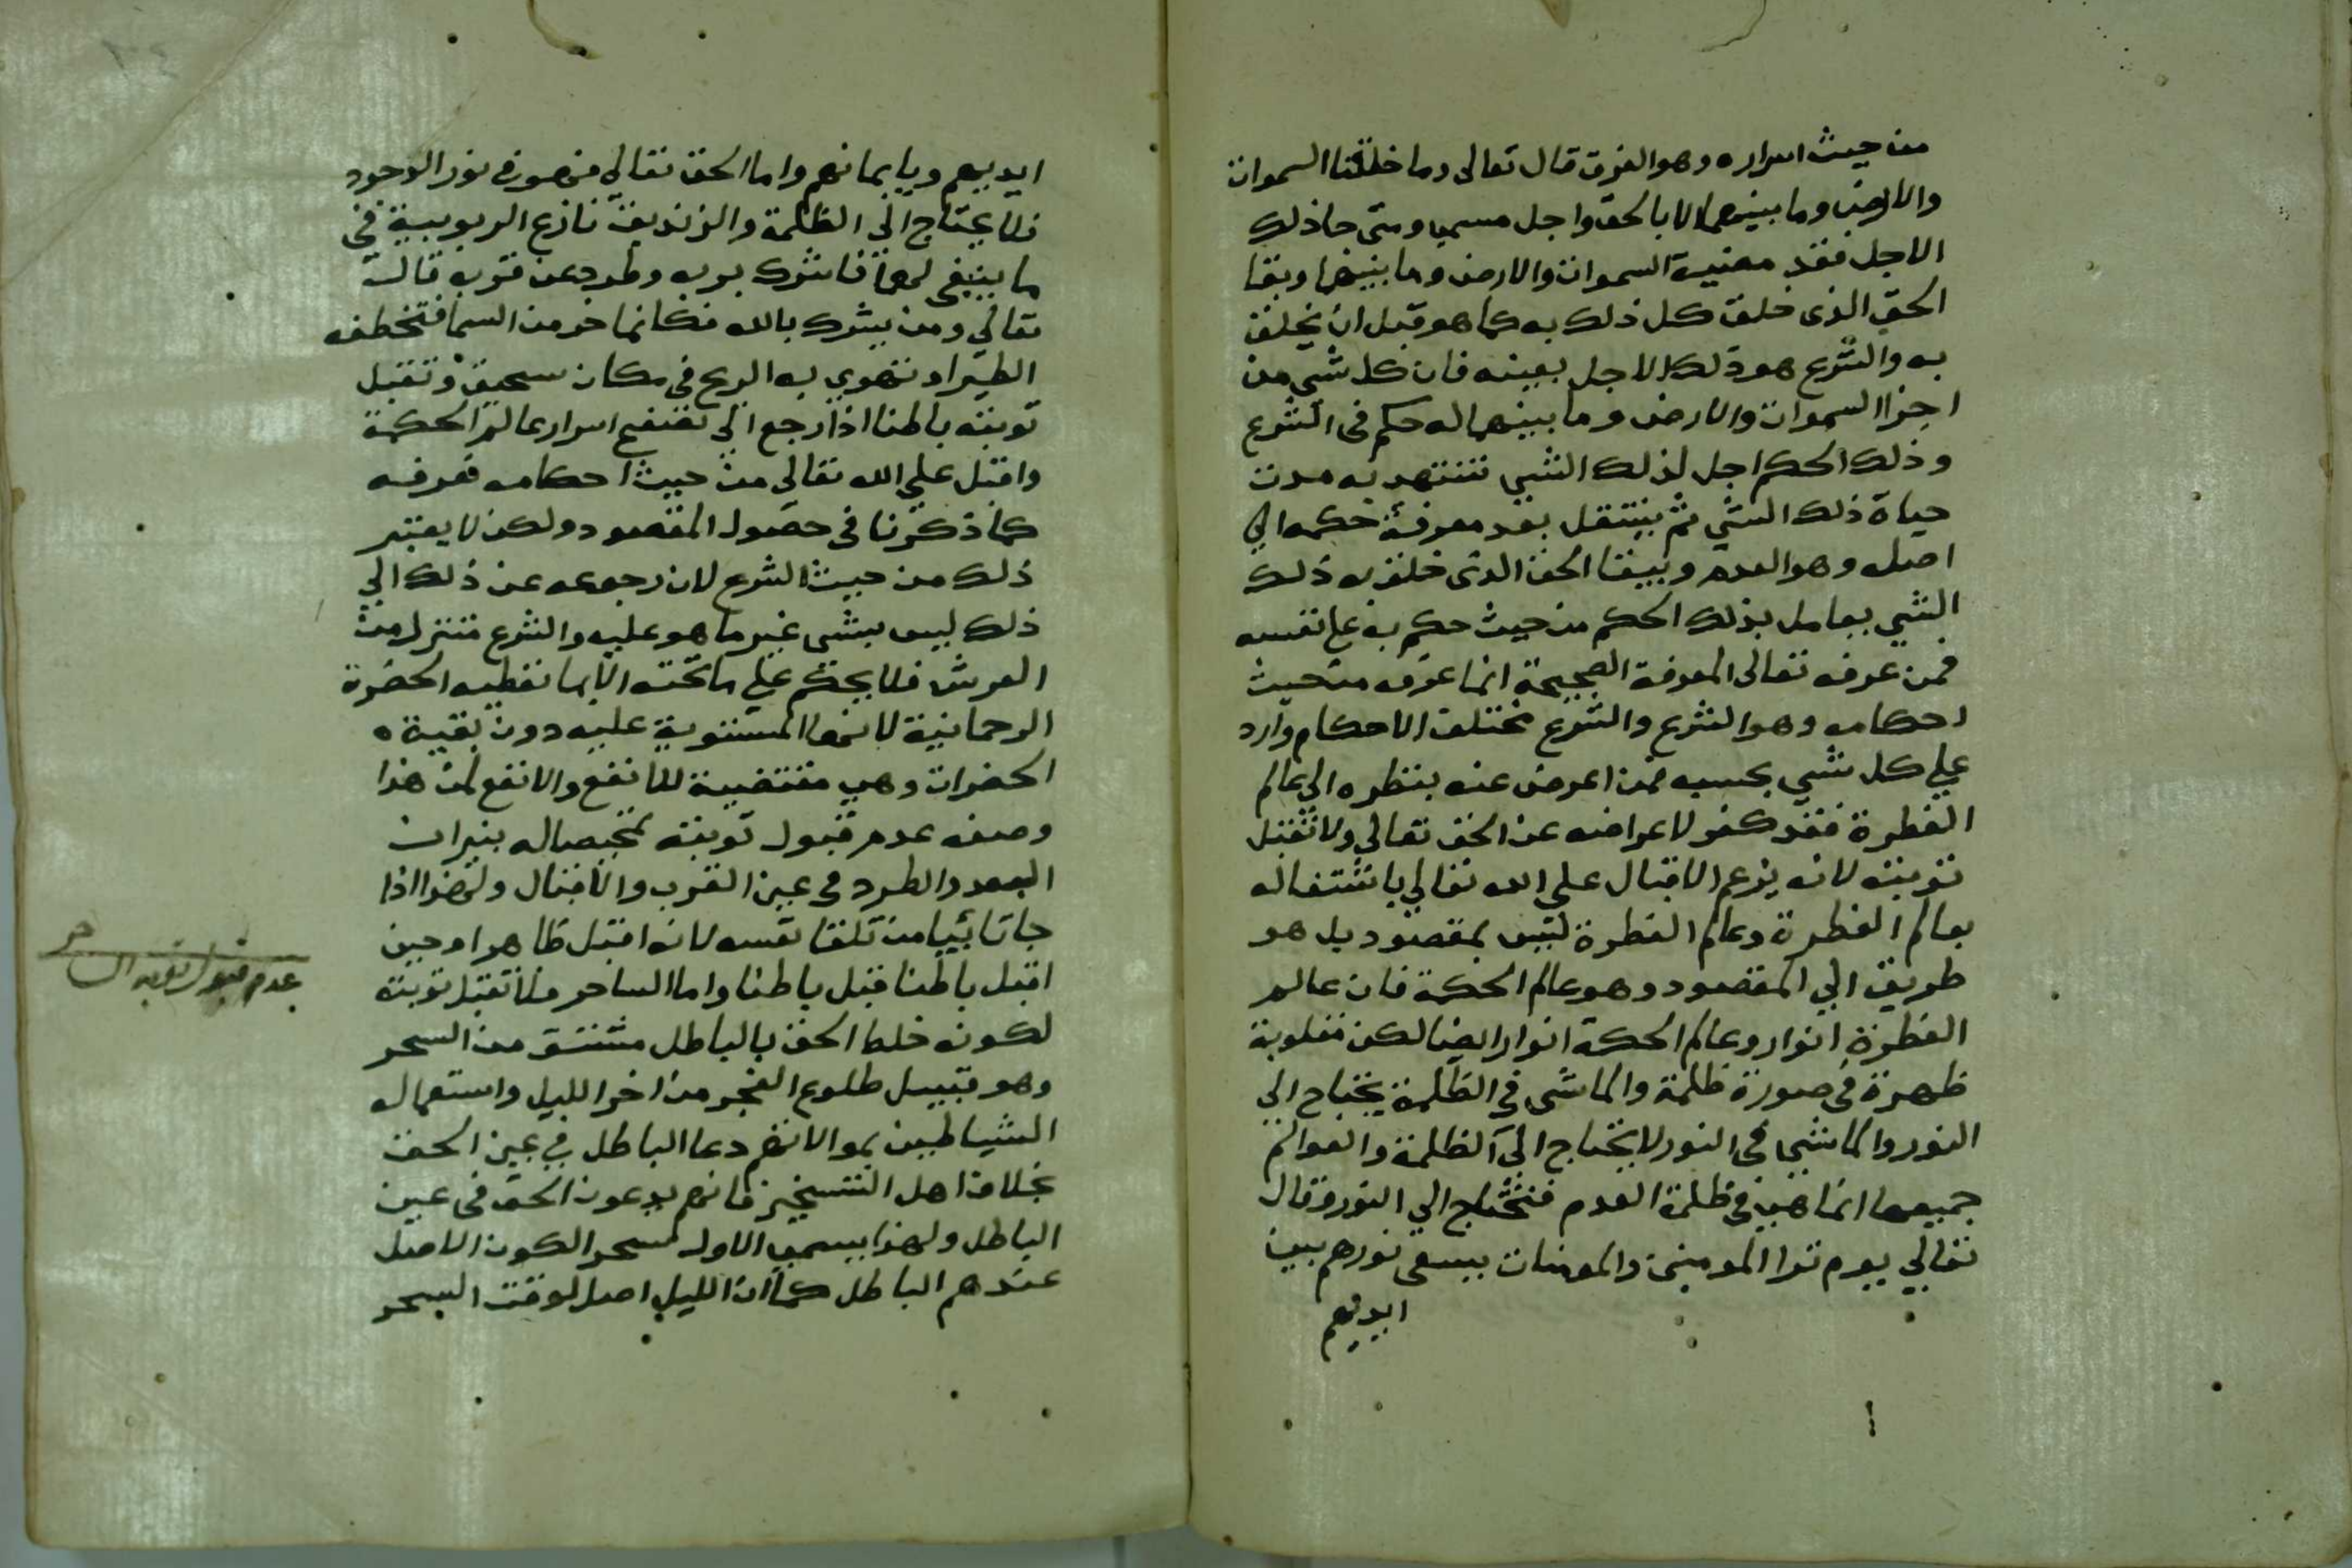 من حيث اسراره وهو الفرق قال تعالى وما خلقنا السموات
والارض وما بينهما الا بالحق واجل مسمى ومتى جا ذلك
الاجل فقد مضيت السموات والارض وما بينهما وبقا
الحق الذى خلق كل ذلك به كما هو قبل ان يخلق
به والشرع هو ذلك الاجل بعينه فان كل شى من
اجزا السموات والارض وما بينهما له حكم فى الشرع
وذلك الحكم اجل لذلك الشي تنتهى به مدت
حياة ذلك الشي ثم ينتقل بعد معرفة حكمه الي
اصله وهو العدم ويبقا الحق الذى خلق به ذلك
الشي يعامل بذلك الحكم من حيث حكم به على نفسه
فمن عرفه تعالى المعرفة الصحيحة انما عرفه من حيث
احكامه وهو الشرع والشرع مختلف الاحكام وارد
علي كل شي بحسبه فمن اعرض عنه بنظره الى عالم
الفطرة فقد كفر لاعراضه عن الحق تعالي ولا تقبل
توبته لانه يزعم الاقبال علي الله تعالي باشتغاله
بعالم الفطرة وعالم الفطرة ليس بمقصود بل هو
طريق الي المقصود وهو عالم الحكمة فان عالم
الفطرة انوار وعالم الحكمة انوار ايضا لكن مقلوبة
ظهرة في صورة ظلمة والماشى في الظلمة يحتاج الي
النور والماشي في النور لا يحتاج الى الظلمة والعوالم
جميعها انما هي في ظلمة العدم فتحتاج الي النور وقال
تعالي يوم ترا المومنين والمومنات يسعى نورهم بين
ايديهم
ايديهم وبايمانهم واما الحق تعالي فهو في نور الوجود
فلا يحتاج الي الظلمة والزنديق نازع الربوبية في
ما ينبغي لها فاشرك بربه وطرد عن قربه قال
تعالي ومن يشرك بالله فكانما خر من السما فتخطفه
الطير او تهوي به الريح في مكان سحيق وتقبل
توبته باطنا اذا رجع الي اسرار عالم الحكمة
واقبل علي الله تعالى من حيث احكامه فعرفه
كما ذكرنا في حصول المقصود ولكن لا يعتبر
ذلك من حيث الشرع لان رجوعه عن ذلك الي
ذلك ليس بشى غير ما هو عليه والشرع متنزل من
العرش فلا يحكم علي ما تحته الا بما تعطيه الحضرة
الرحمانية لانها المستوية عليه دون بقية
الحضرات وهي مقتضية للانفع والانفع لمن هذا
وصفه عدم قبول توبته تمحيصا له بنيران
البعد والطرد في عين القرب والاقبال ولهذا اذا
جا تايبا من تلقا نفسه لانه اقبل ظاهرا وحين
اقبل باطنا قبل باطنا واما الساحر فلا تقبل توبته
لكونه خلط الحق بالباطل مشتق من السحر
وهو قبيل طلوع الفجر من اخر الليل واستعماله
الشياطين بموالاتهم دعا الباطل في عين الحق
بخلاف اهل التسخير فانهم يدعون الحق في عين
الباطل ولهذا يسمى الاول سحر الكون الاصل
عندهم الباطل كما ان الليل اصل لوقت السحر
عدم قبول توبه الساحر